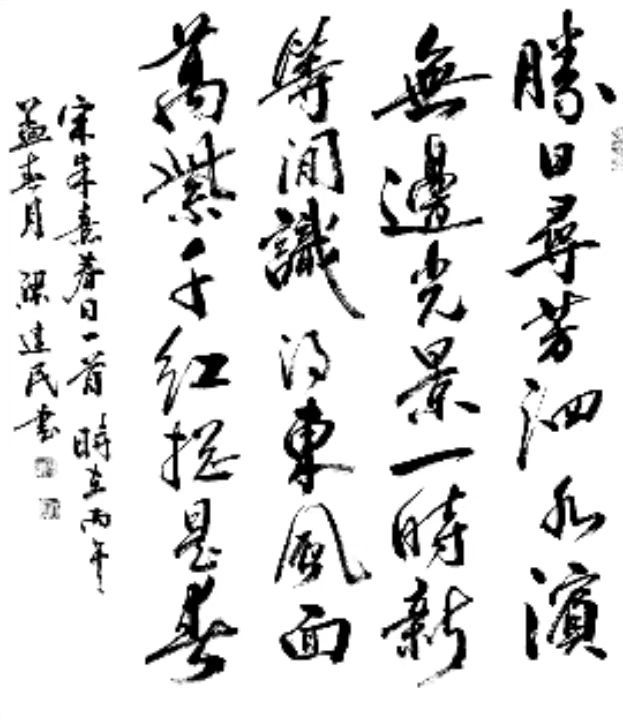 勝日尋芳泗水濱
無邊光景一時新
等閒識得東風面
萬紫千紅揔是春
宋朱熹春日一首 時在丙午
孟春月 梁建民書